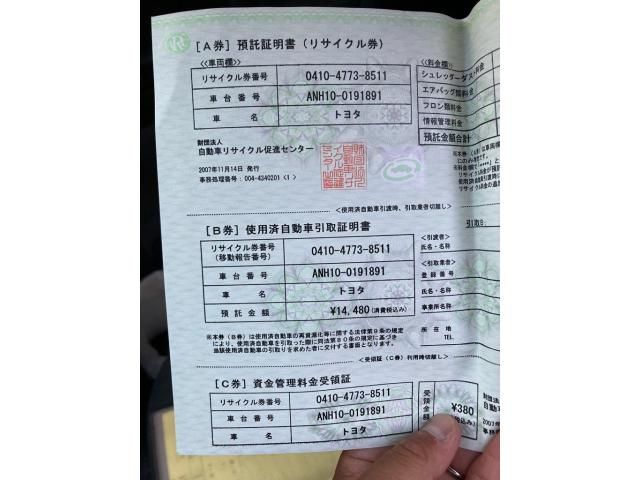 [A券] 預託証明書 (リサイクル券)
≪車両欄≫
リサイクル券番号 0410-4773-8511
車台番号 ANH10-0191891
車名 トヨタ
財団法人
自動車リサイクル促進センター
2007年11月14日 発行
事務処理番号: 004-4340201 <1>
≪料金欄≫
シュレッダーダスト料金
エアバッグ類料金
フロン類料金
情報管理料金
預託金額合計
<使用済自動車引渡時、引取業者切離し>
[B券] 使用済自動車引取証明書
リサイクル券番号
(移動報告番号) 0410-4773-8511
車台番号 ANH10-0191891
車名 トヨタ
預託金額 ¥14,480(消費税込み)
※本券(B券)は使用済自動車の再資源化等に関する法律第9条の規定
により、使用済自動車を引取った際に同法第80条の規定に基づき
当該使用済自動車の引取りを求めた者に交付する書面となります。
引取日:
<引渡者>
氏名・名称
<引取業者>
登録番号
氏名・名称
事業所名称
所在地
TEL.
<受領証(C券)利用時切離し>
[C券] 資金管理料金受領証
リサイクル券番号 0410-4773-8511
車台番号 ANH10-0191891
車名 トヨタ
受領金額
¥380
財団法
自動車
2007年